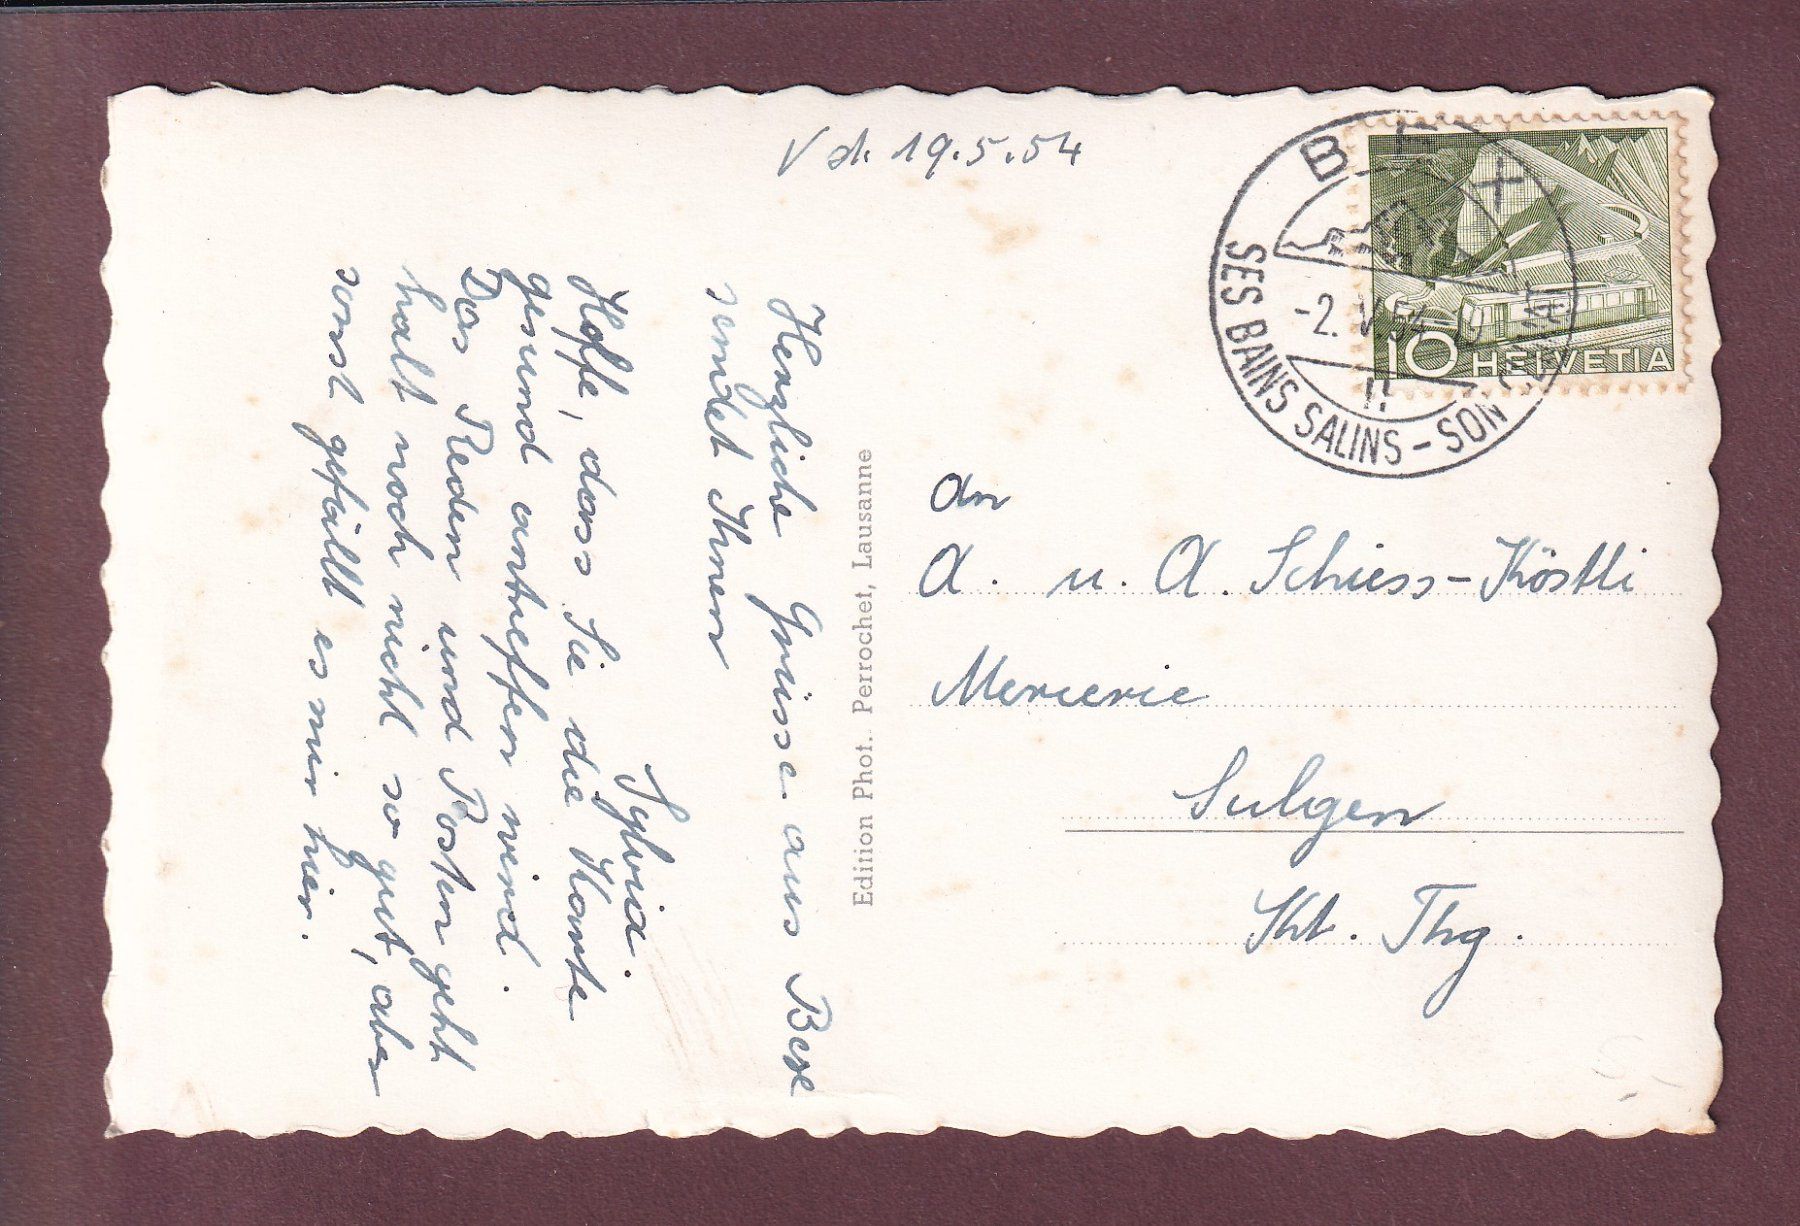 V d. 19.5.54
BEX
SES BAINS SALINS - SON CLIMAT
-2. V. 54
10 HELVETIA
Herzliche Grüsse aus Bex
sendet Ihnen
Sylvia.
Hoffe, dass Sie die Karte
gesund antreffen wird.
Das Reden und Posten geht
halt noch nicht so gut, aber
sonst gefällt es mir hier.
Edition Phot. Perrochet, Lausanne
An
A. u. A. Schiess-Köstli
Mercerie
Sulgen
Kt. Thg.